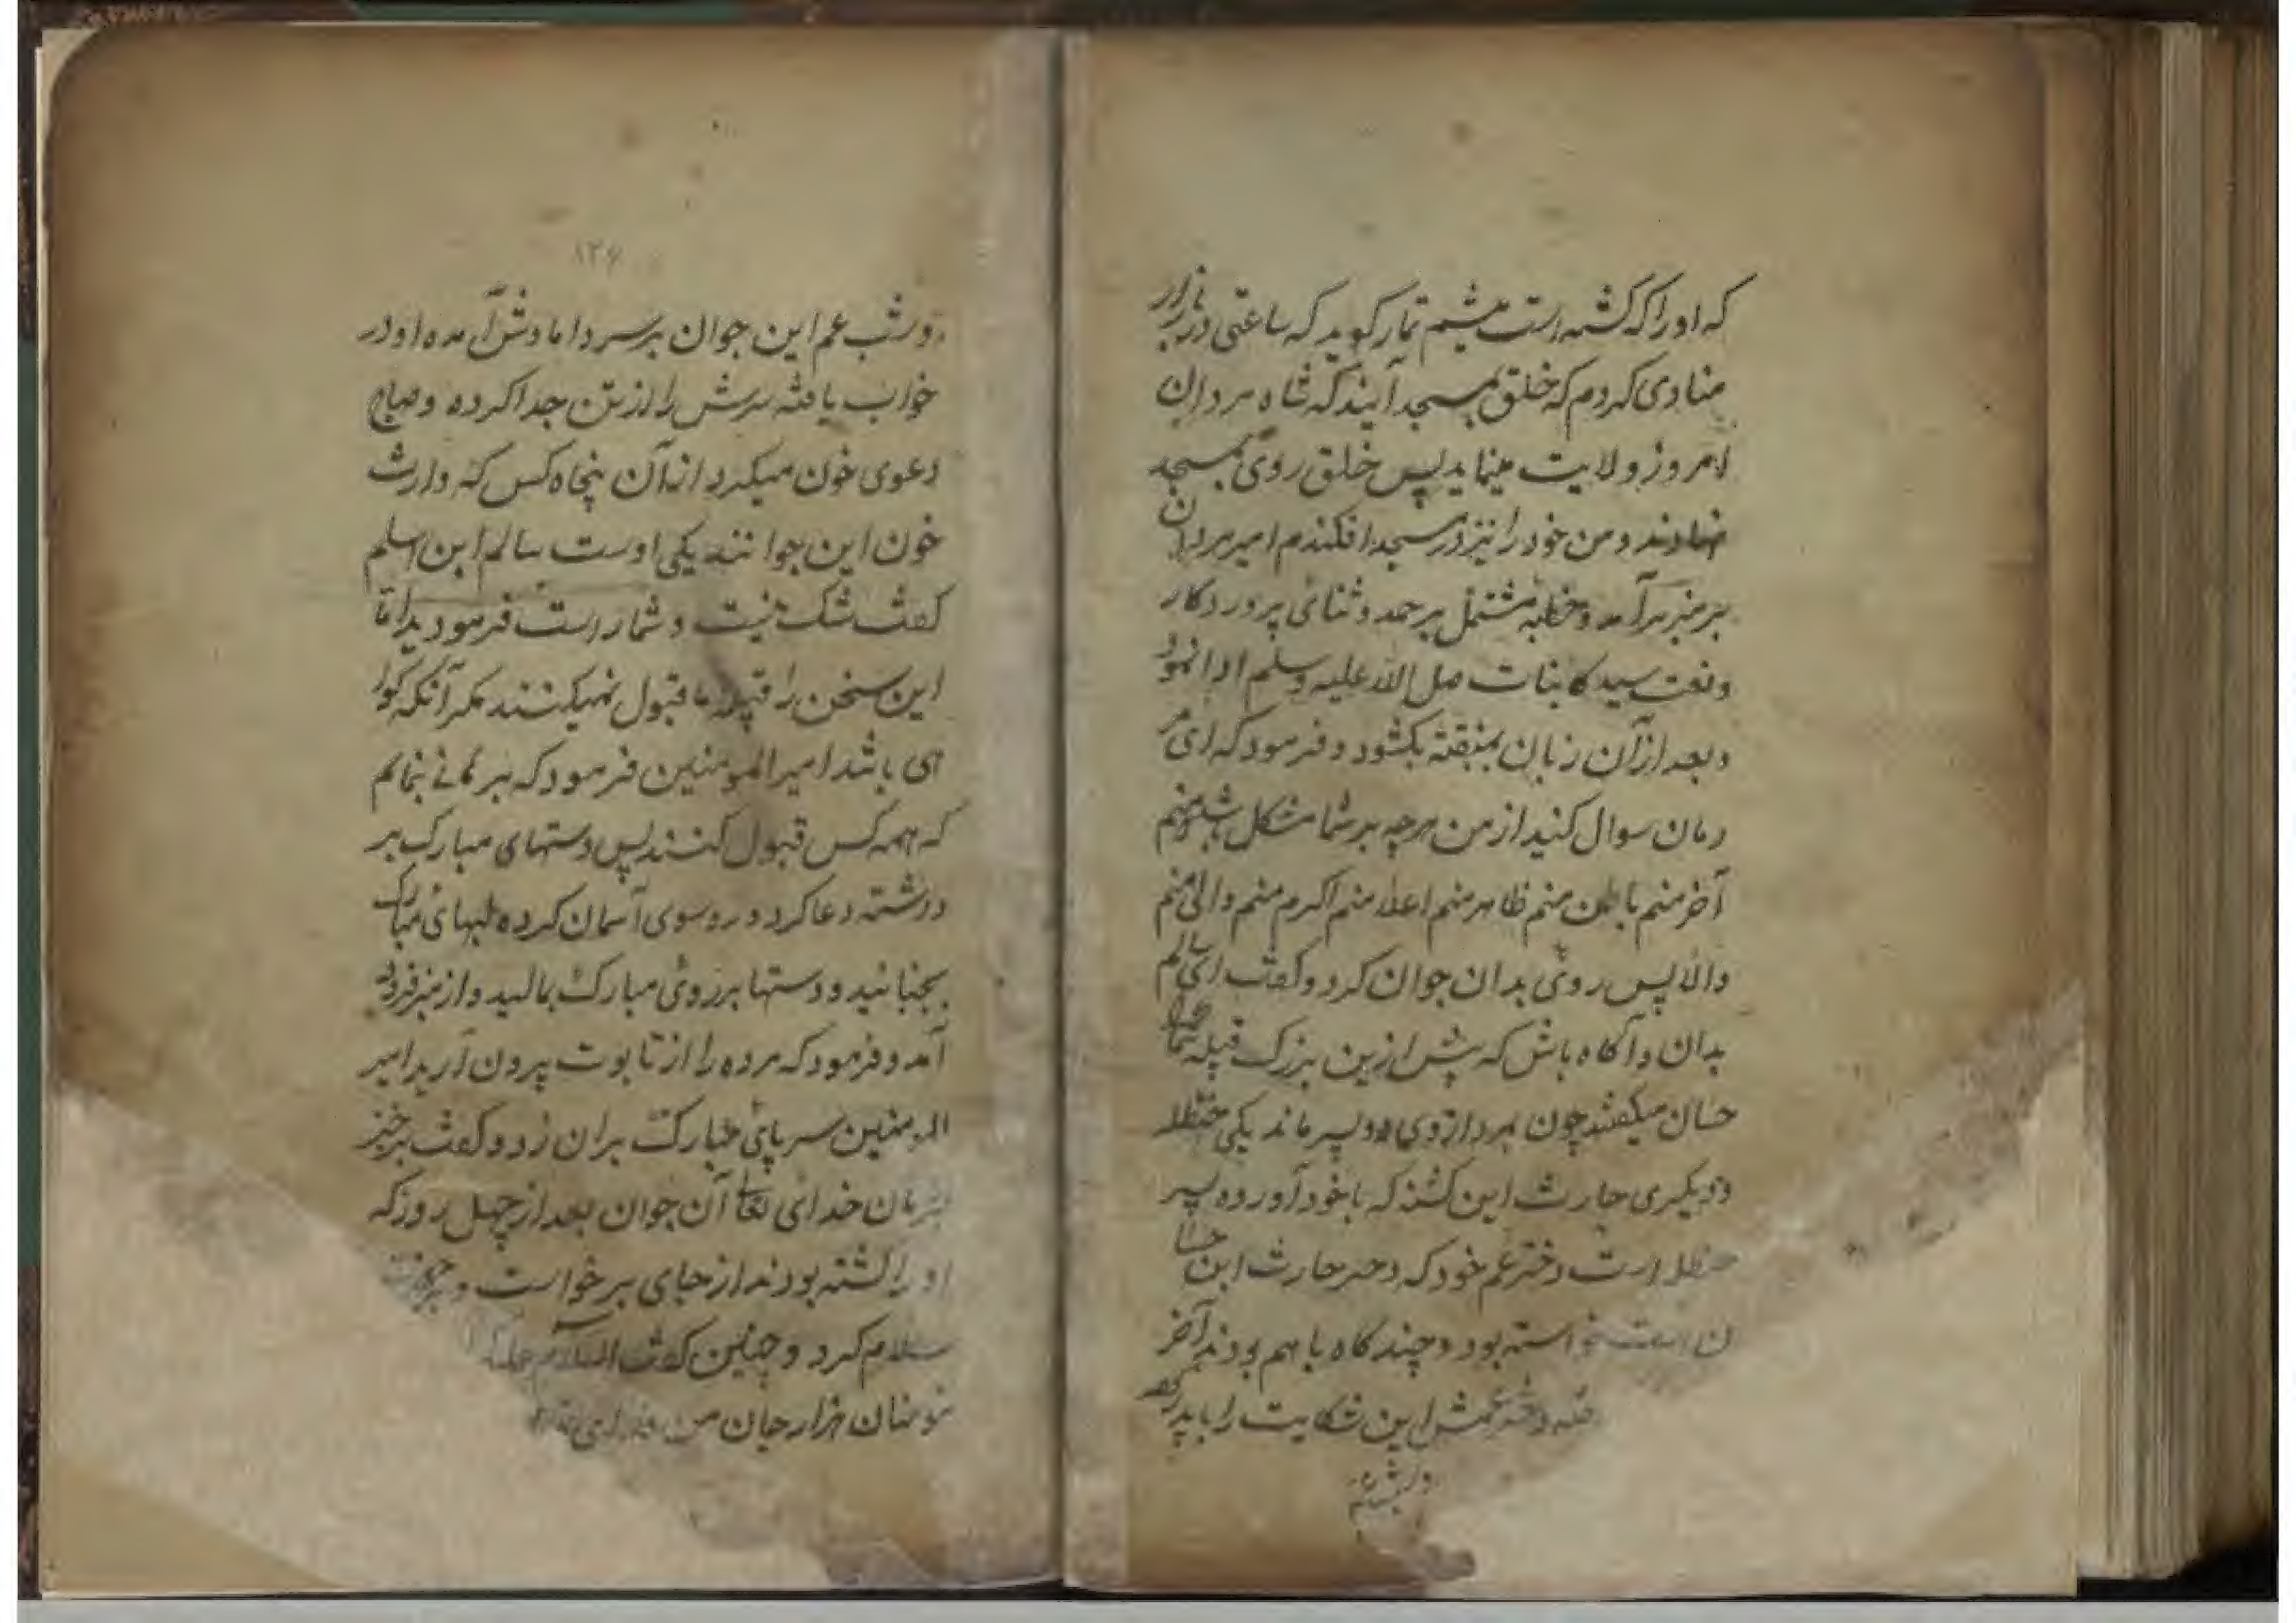 که اورا که کشته است میثم تمار کوید که ساعتی در بازار
منادی کردم که خلق بمسجد آیند که شاه مردان
امروز ولایت مینماید پس خلق روی بمسجد
نهادند و من خود را نیز در مسجد افکندم امیر مردان
بر منبر برآمد و خطبه مشتمل بر حمد و ثنای پروردکار
و نعت سید کاینات صلی الله علیه وسلم ادا نمود
و بعد از آن زبان بکشود و فرمود که ای مر
دمان سوال کنید از من هرچه بر شما مشکل باشد منم
آخر منم باطن منم ظاهر منم اعلا منم اکرم منم والی منم
والا پس روی بدان جوان کرد و کفت ای سالم
بدان و آکاه باش که پیش ازین بزرک قبیله شما
حسان میکفتند چون بمرد از وی دو پسر ماند یکی حنظله
و دیکری حارث این کشته که با خود آورده پسر
حنظله است دختر عم خود که دختر حارث ابن حسا
ن است خواسته بود و چند کاه با هم بودند آخر
دختر عمش این شکایت را با پدر کفته
۱۲۶
و شب عم این جوان بر سر دامادش آمده او در
خواب یافته سرش را از تن جدا کرده و صباح
دعوی خون میکرد از آن پنجاه کس که وارث
خون این جوانند یکی اوست سالم ابن اسلم
کفت شک نیست و شما راست فرمودید اما
این سخن را قبیله ما قبول نمیکنند مکر آنکه کوا
هی باشد امیر المومنین فرمود که برهانی بنمایم
که همه کس قبول کنند پس دستهای مبارک بر
داشته دعا کرد و رو سوی آسمان کرده لبهای مبارک
بجنبانید و دستها بر روی مبارک بمالید و از منبر فرود
آمد و فرمود که مرده را از تابوت بیرون آرید امیر
المومنین سر پای مبارک بران زد و کفت برخیز
بفرمان خدای تعا آن جوان بعد از چهل روز که
او را کشته بودند از جای برخواست و
سلام کرد و چنین کفت السلام علیک
مومنان هزار جان من فدای